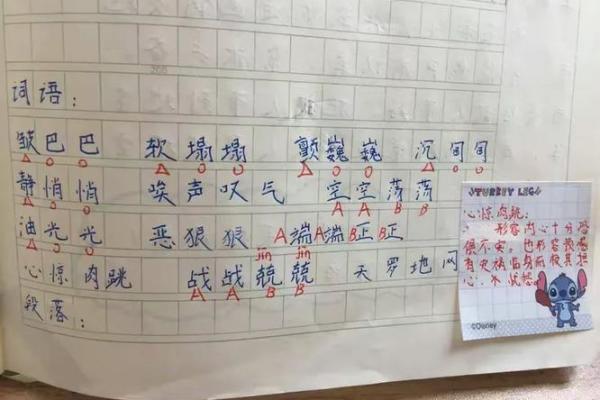 词语：
皱巴巴 软塌塌 颤巍巍 沉甸甸
静悄悄 唉声叹气 空空荡荡
油光光 恶狠狠 端端正正
心惊肉跳 战战兢兢 天罗地网
段落：
TURKEY LEGS
心惊肉跳：
形容内心十分恐
惧不安，也形容预感
有灾祸临身而极其担
心、不忧愁。
©Disney
△ ○ ○ △ ○ ○ △ ○ ○ △ ○ ○
△ ○ ○ A A B B
△ ○ ○ A A B B
jīn jīn
A A B B